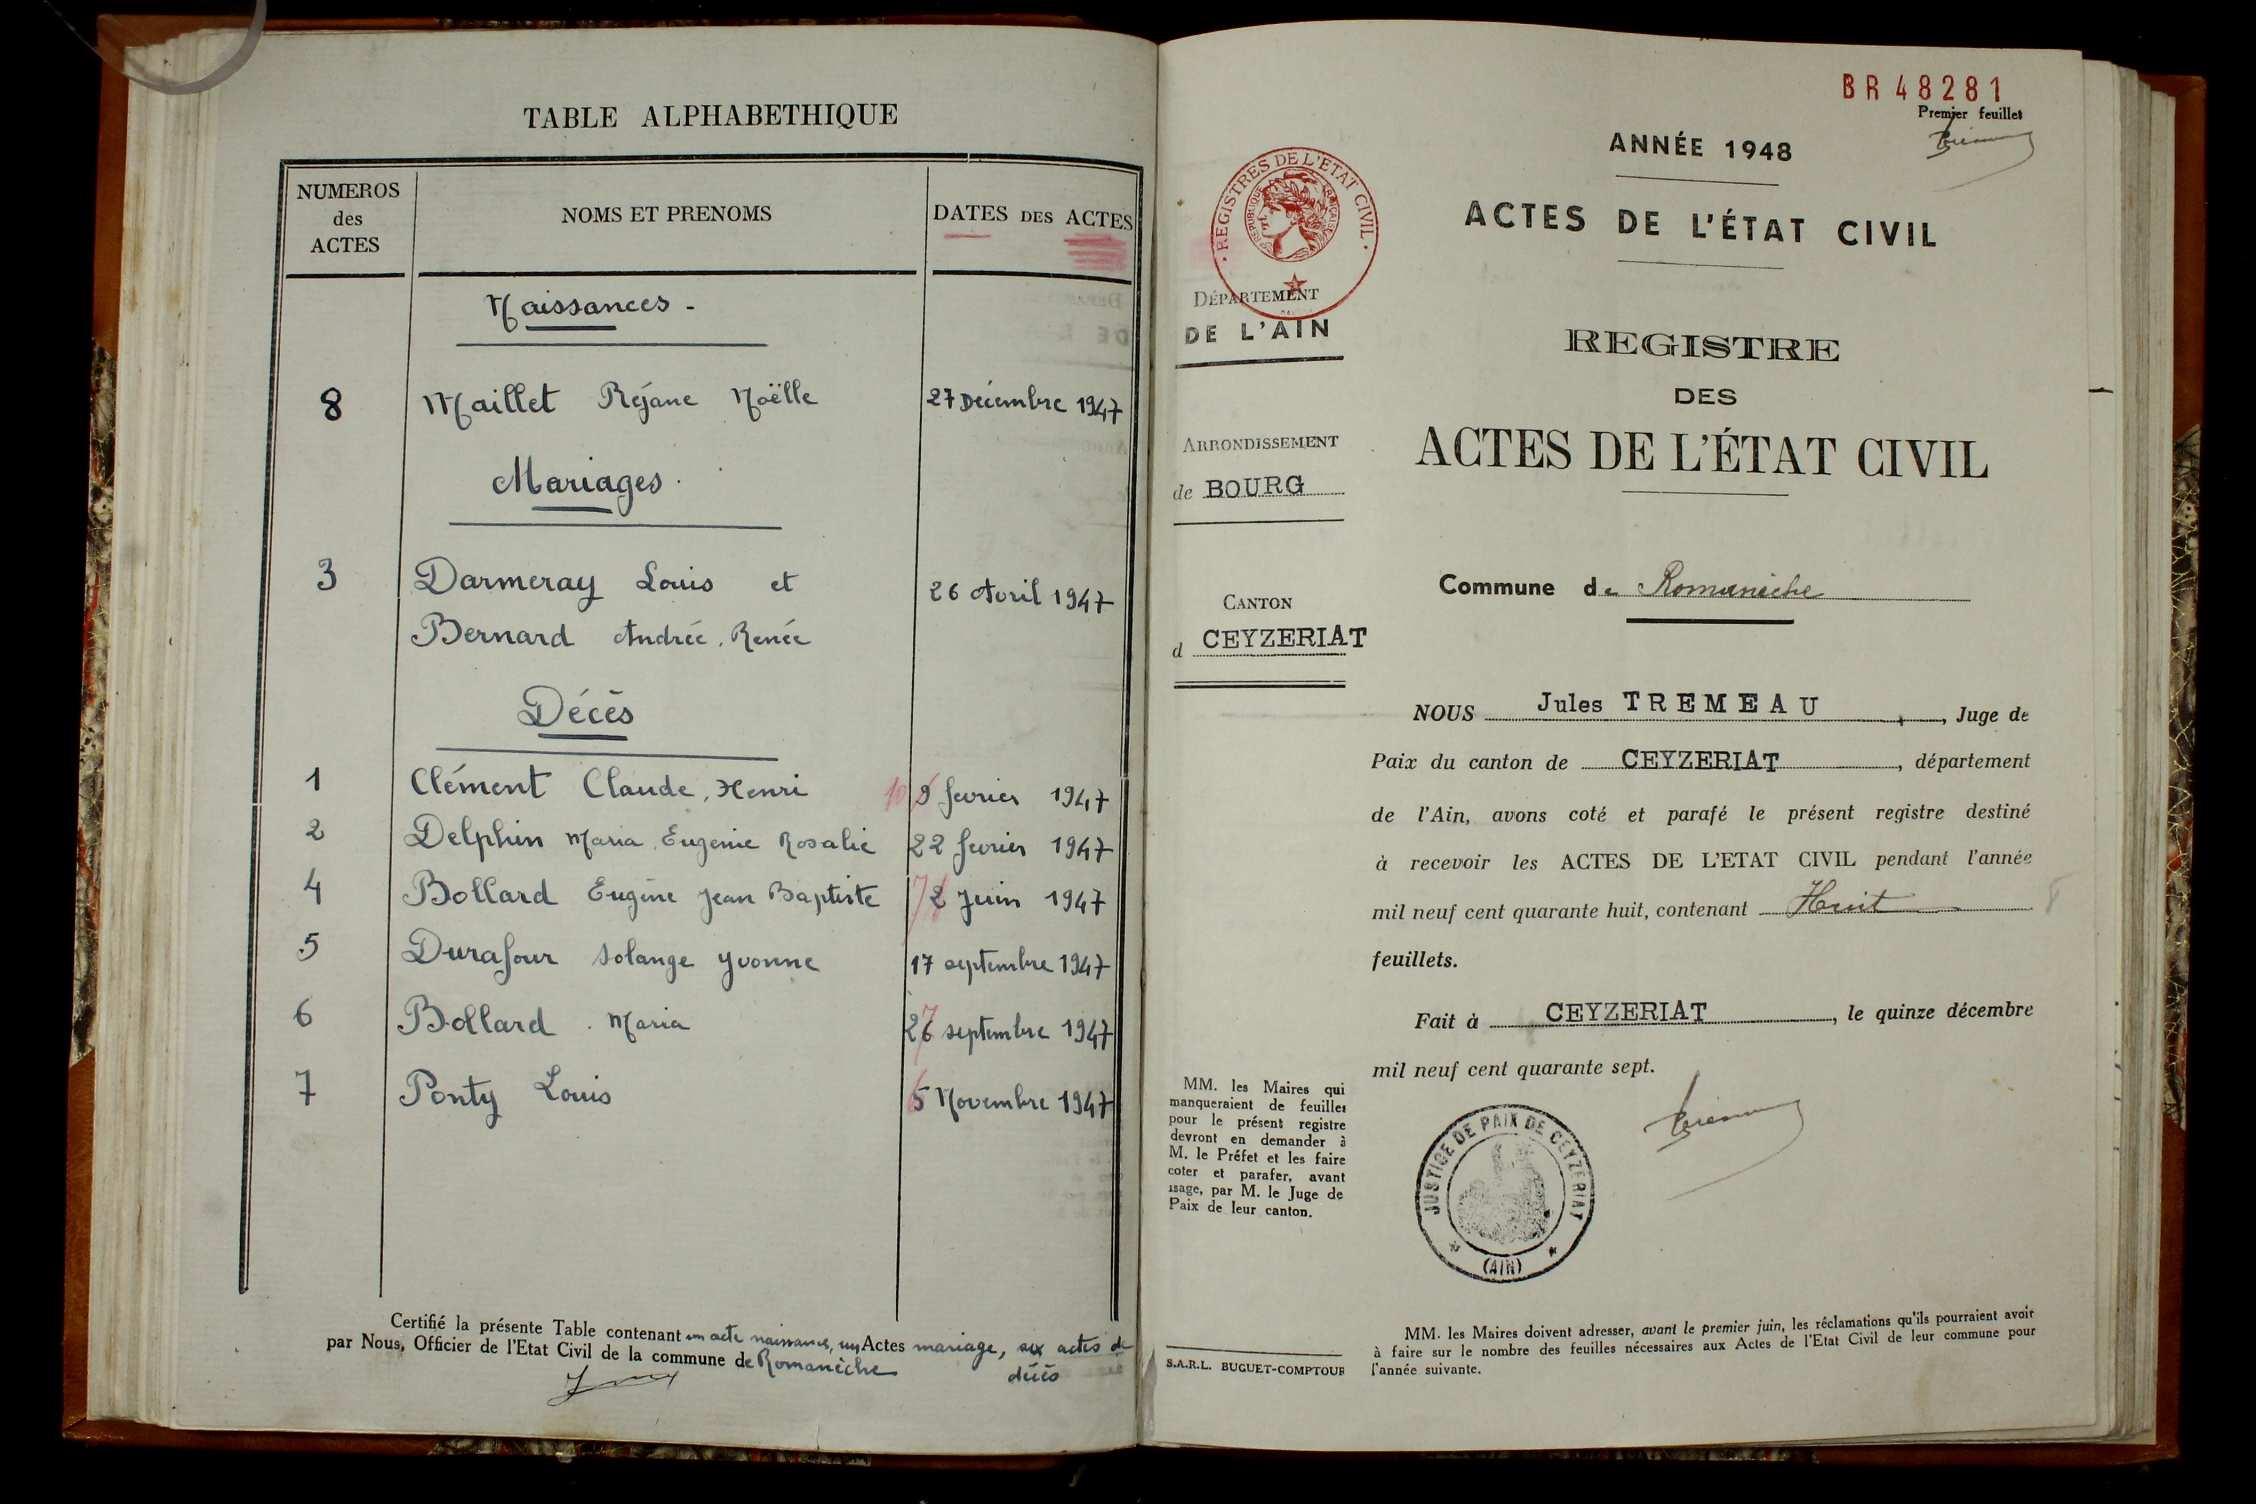 TABLE ALPHABETHIQUE
NUMEROS
des
ACTES
NOMS ET PRENOMS
DATES DES ACTES
Naissances -
8 Maillet Réjane Noëlle 27 Décembre 1947
Mariages.
3 Darmeray Louis et 26 Avril 1947
Bernard Andrée, Renée
Décès
1 Clément Claude, Henri 10 9 fevrier 1947
2 Delphin Maria Eugenie Rosalie 22 fevrier 1947
4 Bollard Eugène Jean Baptiste 2 Juin 1947
5 Durafour Solange Yvonne 17 septembre 1947
6 Bollard . Maria 26 7 septembre 1947
7 Ponty Louis 5 Novembre 1947
Certifié la présente Table contenant un acte naissance, un Actes mariage, six actes de
par Nous, Officier de l'Etat Civil de la commune de Romanèche décès
BR 48281
Premier feuillet
ANNÉE 1948
ACTES DE L'ÉTAT CIVIL
· REGISTRES DE L'ETAT CIVIL ·
REPUBLIQUE FRANÇAISE
DÉPARTEMENT
DE L'AIN
REGISTRE
DES
ACTES DE L'ÉTAT CIVIL
ARRONDISSEMENT
de BOURG
CANTON
d CEYZERIAT
Commune de Romanèche
NOUS Jules TREMEAU, Juge de
Paix du canton de CEYZERIAT, département
de l'Ain, avons coté et parafé le présent registre destiné
à recevoir les ACTES DE L'ETAT CIVIL pendant l'année
mil neuf cent quarante huit, contenant Huit 8
feuillets.
Fait à CEYZERIAT, le quinze décembre
mil neuf cent quarante sept.
MM. les Maires qui
manqueraient de feuilles
pour le présent registre
devront en demander à
M. le Préfet et les faire
coter et parafer, avant
usage, par M. le Juge de
Paix de leur canton.
JUSTICE DE PAIX DE CEYZERIAT
(AIN)
S.A.R.L. BUGUET-COMPTOUR
MM. les Maires doivent adresser, avant le premier juin, les réclamations qu'ils pourraient avoir
à faire sur le nombre des feuilles nécessaires aux Actes de l'Etat Civil de leur commune pour
l'année suivante.